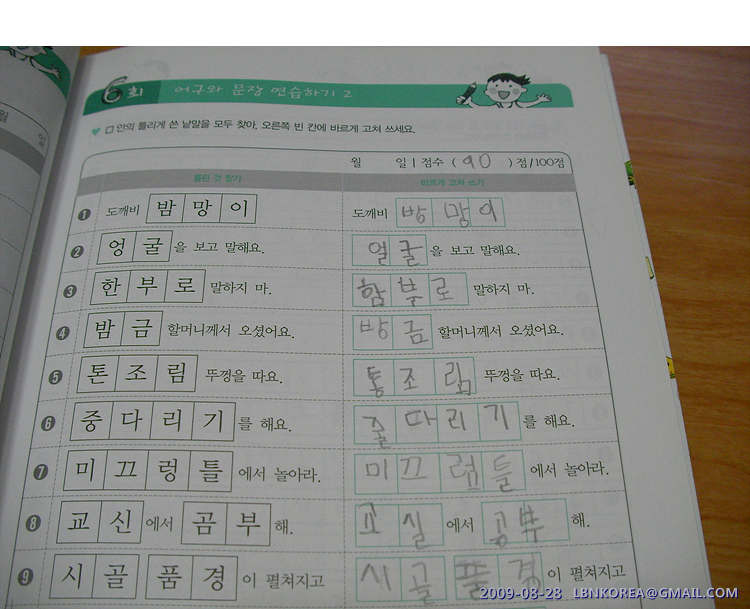 월
일
6회 어구와 문장 연습하기 2
□ 안의 틀리게 쓴 낱말을 모두 찾아, 오른쪽 빈 칸에 바르게 고쳐 쓰세요.
월 일 | 점수 ( 90 ) 점/100점
틀린 것 찾기 바르게 고쳐 쓰기
1 도깨비 밤망이 도깨비 방망이
2 엉굴을 보고 말해요. 얼굴을 보고 말해요.
3 한부로 말하지 마. 함부로 말하지 마.
4 밤금 할머니께서 오셨어요. 방금 할머니께서 오셨어요.
5 톤조림 뚜껑을 따요. 통조림 뚜껑을 따요.
6 중다리기를 해요. 줄따리기를 해요.
7 미끄렁틀에서 놀아라. 미끄럼틀에서 놀아라.
8 교신에서 곰부해. 교실에서 공부해.
9 시골 품경이 펼쳐지고 시골 풍경이 펼쳐지고
2009-08-28 LBNKOREA@GMAIL.COM